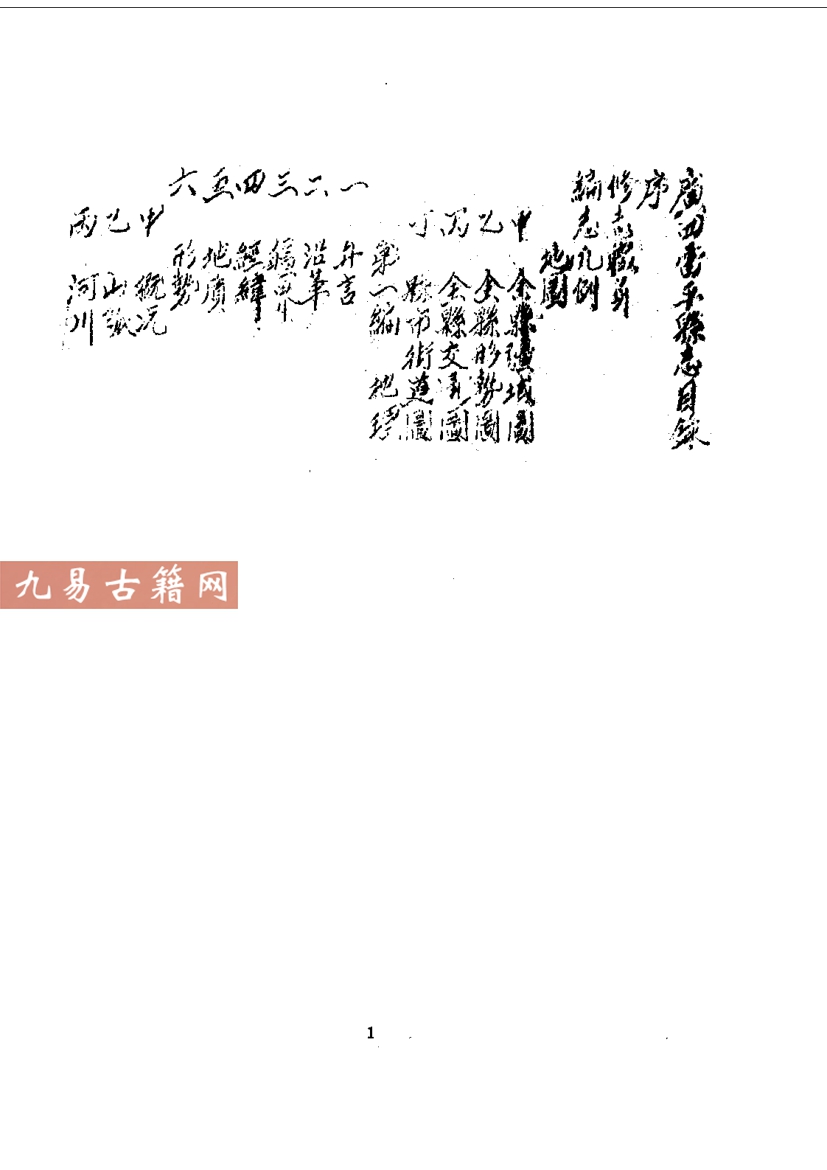 廣西雷平縣志目錄
序
修志職員
編志凡例
地圖
甲 全縣疆域圖
乙 全縣形勢圖
丙 全縣交通圖
丁 縣市街道圖
第一編 地理
一 弁言
二 沿革
三 疆界
四 經緯
五 地質
六 形勢
甲 概況
乙 山脈
丙 河川
九易古籍网
1